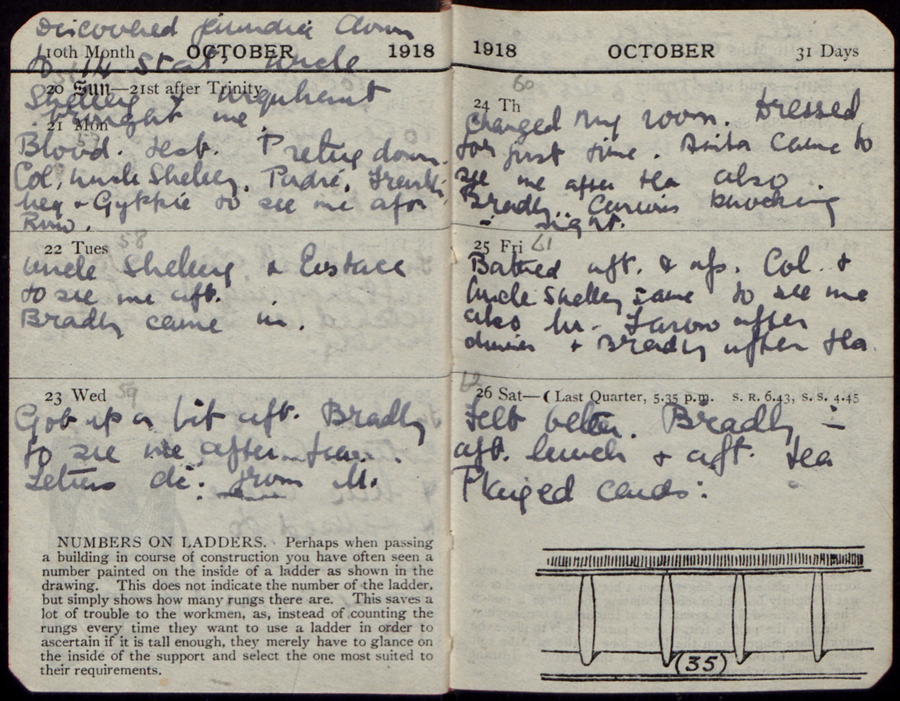 Discovered jaundice Down
10th Month OCTOBER 1918
to 14 Stat. Uncle
20 Sun—21st after Trinity
Shelley & Urquhart
brought me
21 Mon
57
Blood. test. Pretty down.
Col, Uncle Shelley, Padré,
hey & Gyppie to see me after
Run.
22 Tues 58
Uncle Shelley & Eustace
to see me aft.
Bradly came in.
23 Wed 59
Got up a bit aft. Bradly
to see me after tea.
Letters etc: from M.
NUMBERS ON LADDERS. Perhaps when passing
a building in course of construction you have often seen a
number painted on the inside of a ladder as shown in the
drawing. This does not indicate the number of the ladder,
but simply shows how many rungs there are. This saves a
lot of trouble to the workmen, as, instead of counting the
rungs every time they want to use a ladder in order to
ascertain if it is tall enough, they merely have to glance on
the inside of the support and select the one most suited to
their requirements.
1918 OCTOBER 31 Days
24 Th 60
Changed my room. Dressed
for first time. Anita came to
see me after tea also
Bradly. Curious knocking
- night.
25 Fri 61
Bathed aft. & Col. &
Uncle Shelley came to see me
also Mr. after
dinner & Bradly after tea.
62
26 Sat—( Last Quarter, 5.35 p.m. S. R. 6.43, S. S. 4.45
Felt better. Bradly in
aft. lunch & aft. tea
Played cards:
(35)